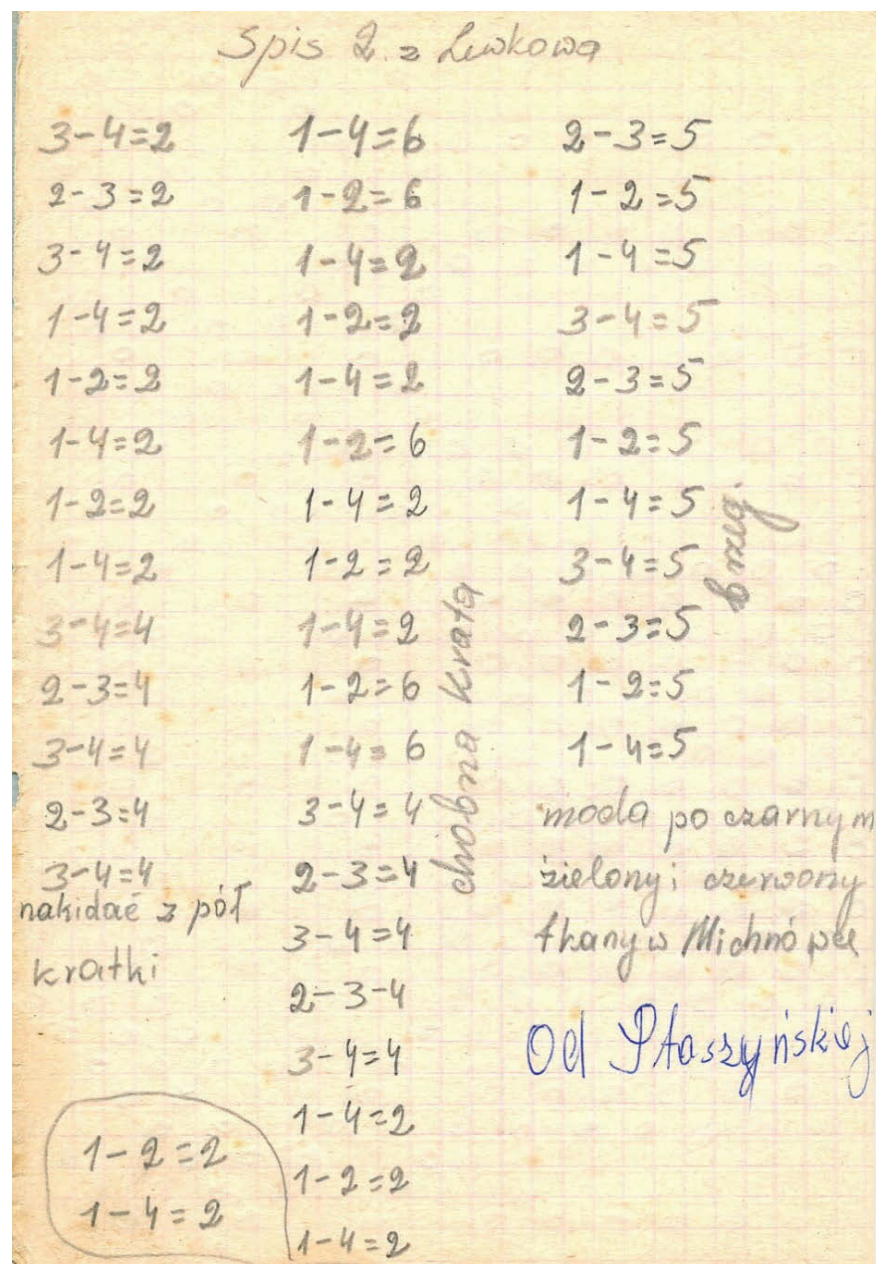 Spis 2. z Lewkowa
3-4=2
2-3=2
3-4=2
1-4=2
1-2=2
1-4=2
1-2=2
1-4=2
3-4=4
2-3=4
3-4=4
2-3=4
3-4=4
nakidać z pół
kratki
1-2=2
1-4=2
1-4=6
1-2=6
1-4=2
1-2=2
1-4=2
1-2=6
1-4=2
1-2=2
1-4=2
1-2=6
1-4=6
3-4=4
2-3=4
3-4=4
2-3-4
3-4=4
1-4=2
1-2=2
1-4=2
drobna krata
2-3=5
1-2=5
1-4=5
3-4=5
2-3=5
1-2=5
1-4=5
3-4=5
2-3=5
1-2=5
1-4=5
brzeg.
moda po czarnym
zielony i czerwony
tkany w Michnówce
Od Ptaszyńskiej